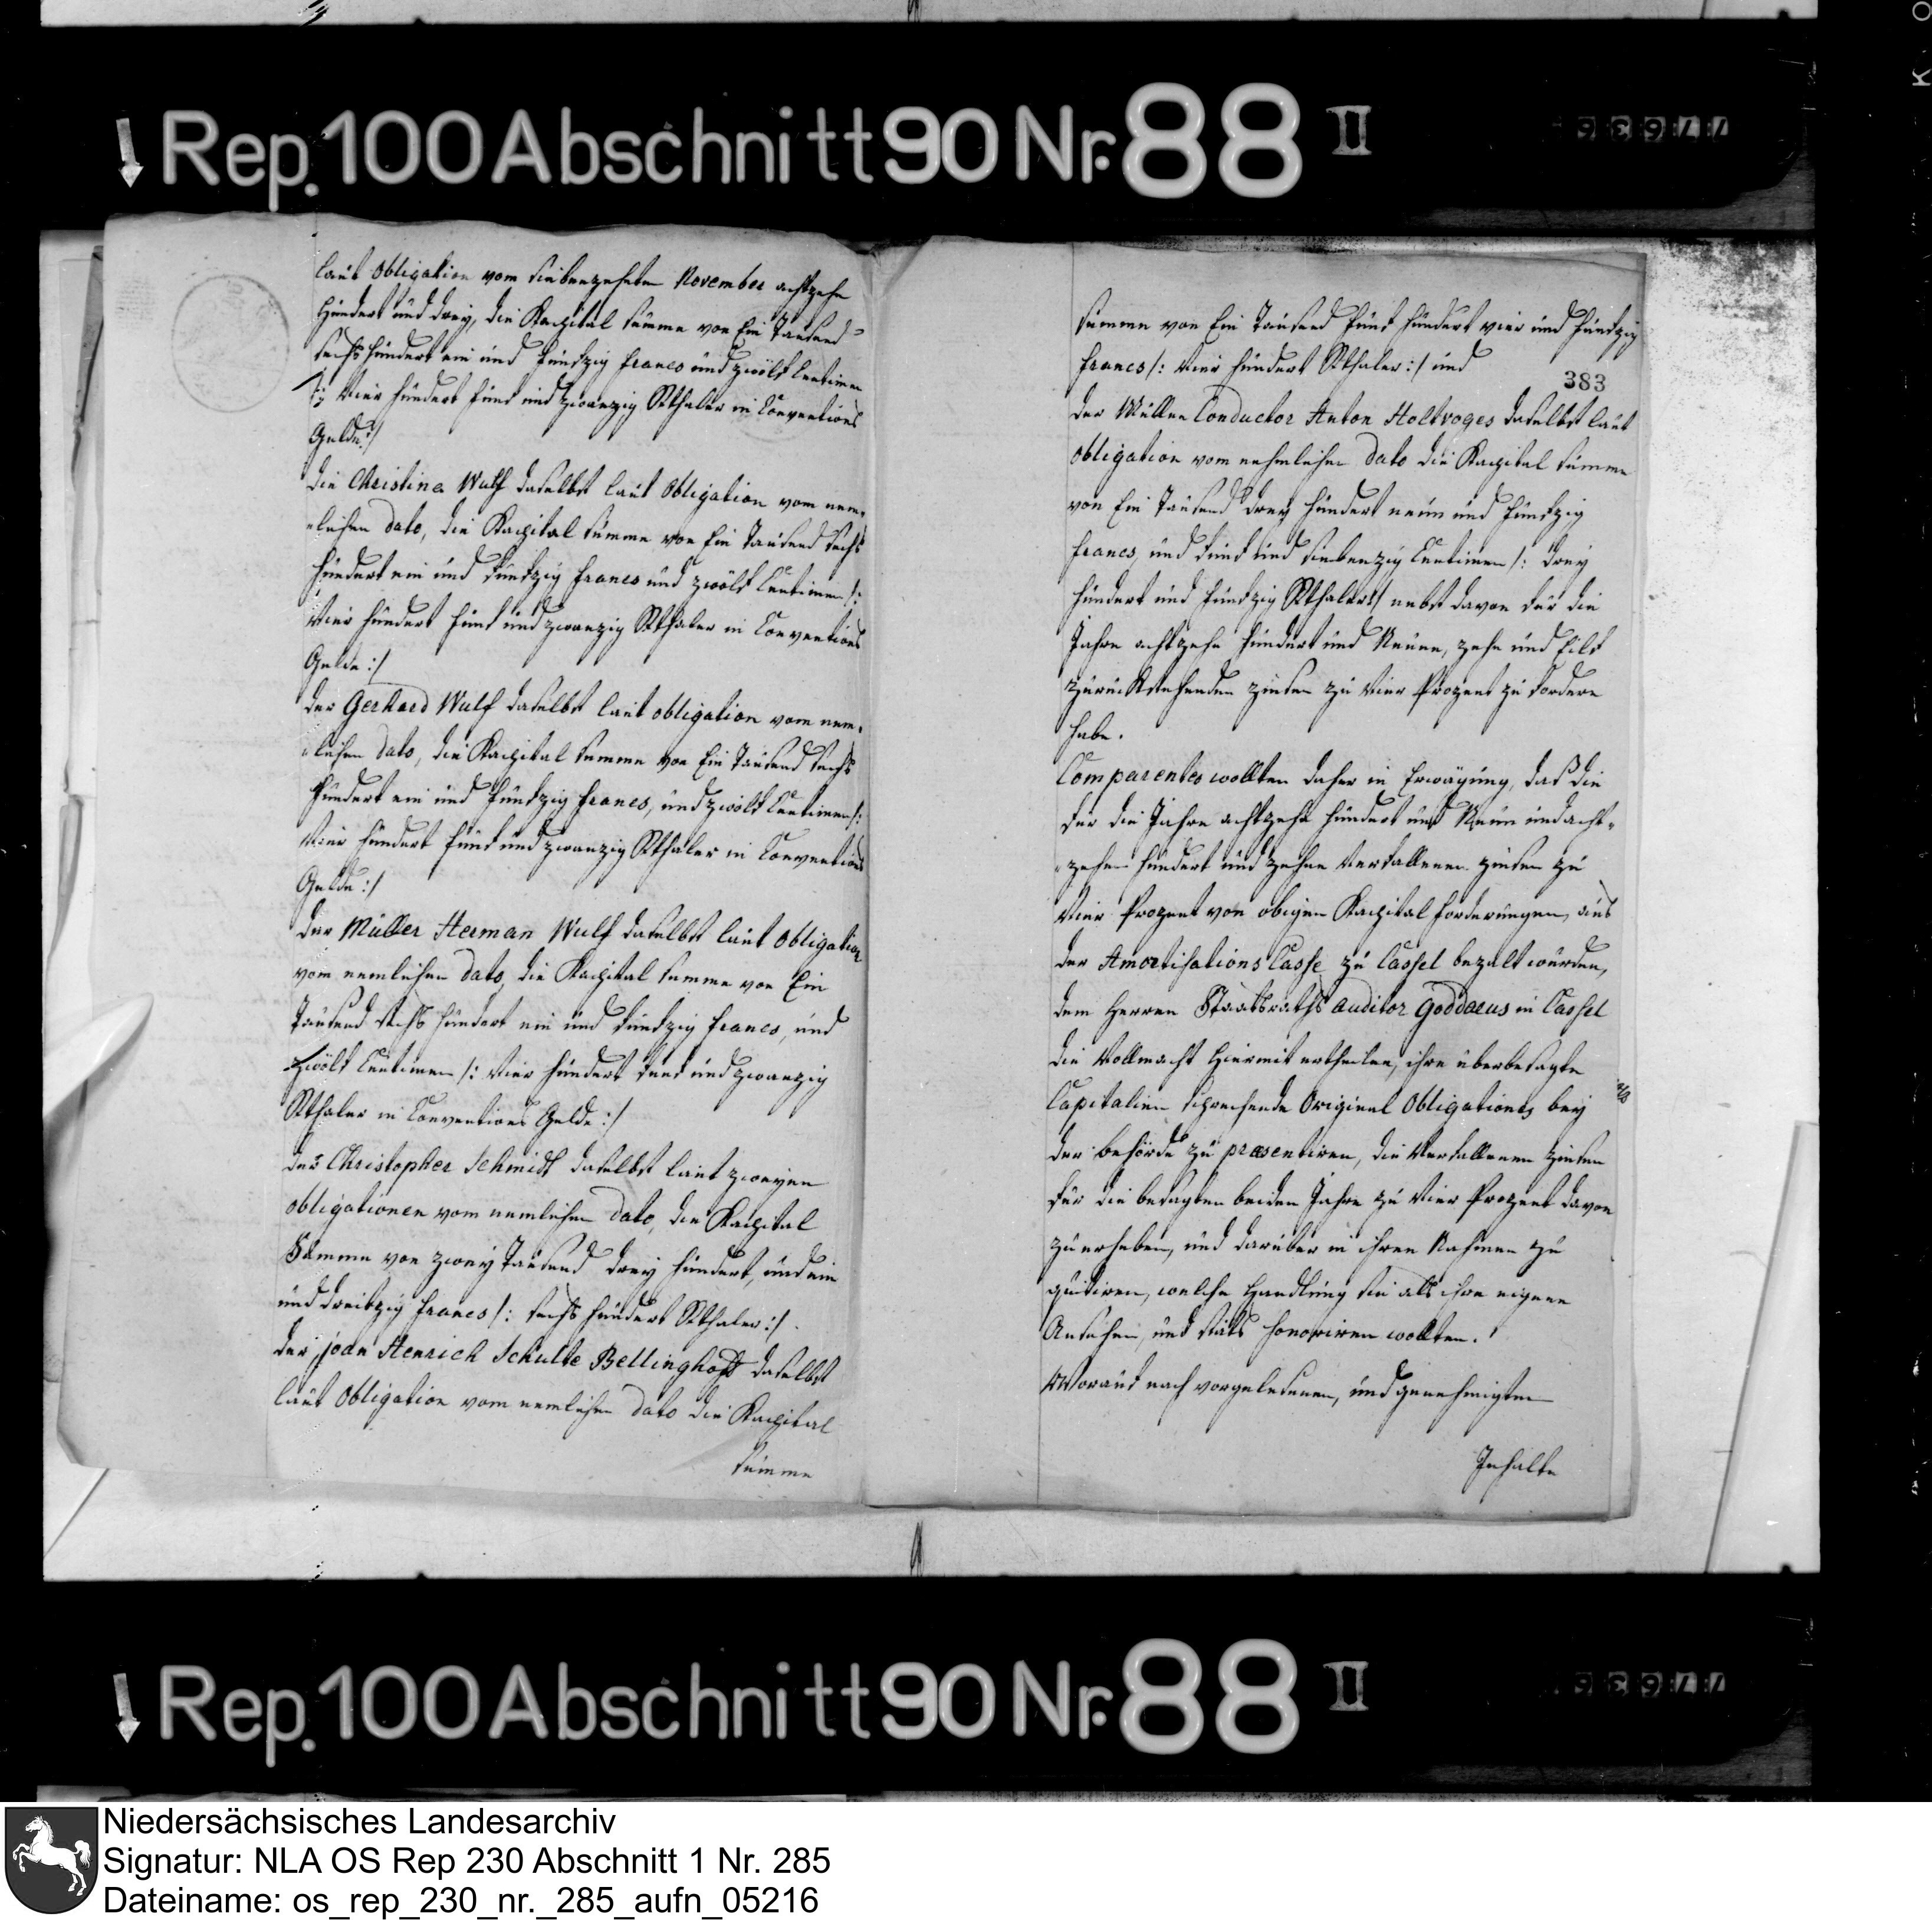 Rep. 100 Abschnitt 90 Nr. 88 II
77636
laut Obligation vom siebenzehnten November achtzehn
hundert und drey, die Kapital summe von Ein Tausend
sechs hundert ein und funfzig francs und zwölf Centimen
/: Vier hundert fünf und zwanzig Rthaler in Conventions
Gelde :/
die Christina Wulf daselbst laut Obligation vom nem-
-lichen dato, die Kapital summe von Ein Tausend sechs
hundert ein und funfzig francs und zwölf Centimen /:
Vier hundert fünf und zwanzig Rthaler in Conventions
Gelde :/
der Gerhard Wulf daselbst laut obligation vom nem-
-lichen dato, die Kapital summe von Ein Tausend sechs
hundert ein und funfzig francs, und zwölf Centimen /:
Vier hundert fünf und zwanzig Rthaler in Conventions
Gelde :/
der Müller Herman Wulf daselbst laut Obligation
vom nemlichen dato, die Kapital summe von Ein
Tausend sechs hundert ein und funfzig francs, und
zwölf Centimen /: Vier hundert funf und zwanzig
Rthaler in Conventions Gelde :/
der Christopher Schmidt daselbst laut zweyen
obligationen vom nemlichen dato, die Kapital
Summe von zwey Tausend drey hundert, und ein
und dreitzig francs /: sechs hundert Rthaler :/.
der Joan Henrich Schulte Bellinghoff daselbst
laut Obligation vom nemlichen dato die Kapital
summe
summe von Ein Tausend fünf hundert vier und funfzig
francs /: Vier hundert Rthaler :/ und
383
der Müllen Conductor Anton Holtvoges daselbst laut
obligation vom nehmlichen dato die Kapital summe
von Ein Tausend drey hundert neun und funfzig
francs, und fünf und siebenzig Centimen /: drey
hundert und funfzig Rthaler :/ nebst davon für die
Jahre achtzehn hundert und Neune, zehn und Eilf
zurückstehenden zinsen zu Vier Prozent zu fordern
habe.
Comparentes wollten daher in Erwägung, daß die
für die Jahre achtzehn hundert und Neun und acht-
-zehen hundert und zehne Verfallenen zinsen zu
Vier Prozent von obigen Kapital forderungen, aus
der Amortisations Casse zu Cassel bezalt würden,
dem Herren Staatsraths auditor Goddaeus in Cassel
die Vollmacht hiermit ertheilen, ihre überbesagte
Capitalien sprechende Original Obligationes bey
der behörde zu præsentiren, die Verfallenen zinsen
für die besagten beiden Jahre zu Vier Prozent davon
zu erheben, und darüber in ihren Nahmen zu
quitiren, welche Handlung sie als ihre eigene
Ansehen, und stäts honoriren wollten.
Worauf nach vorgelesenen, und genehmigten
Inhalte
Rep. 100 Abschnitt 90 Nr. 88 II
77636
Niedersächsisches Landesarchiv
Signatur: NLA OS Rep 230 Abschnitt 1 Nr. 285
Dateiname: os_rep_230_nr._285_aufn_05216